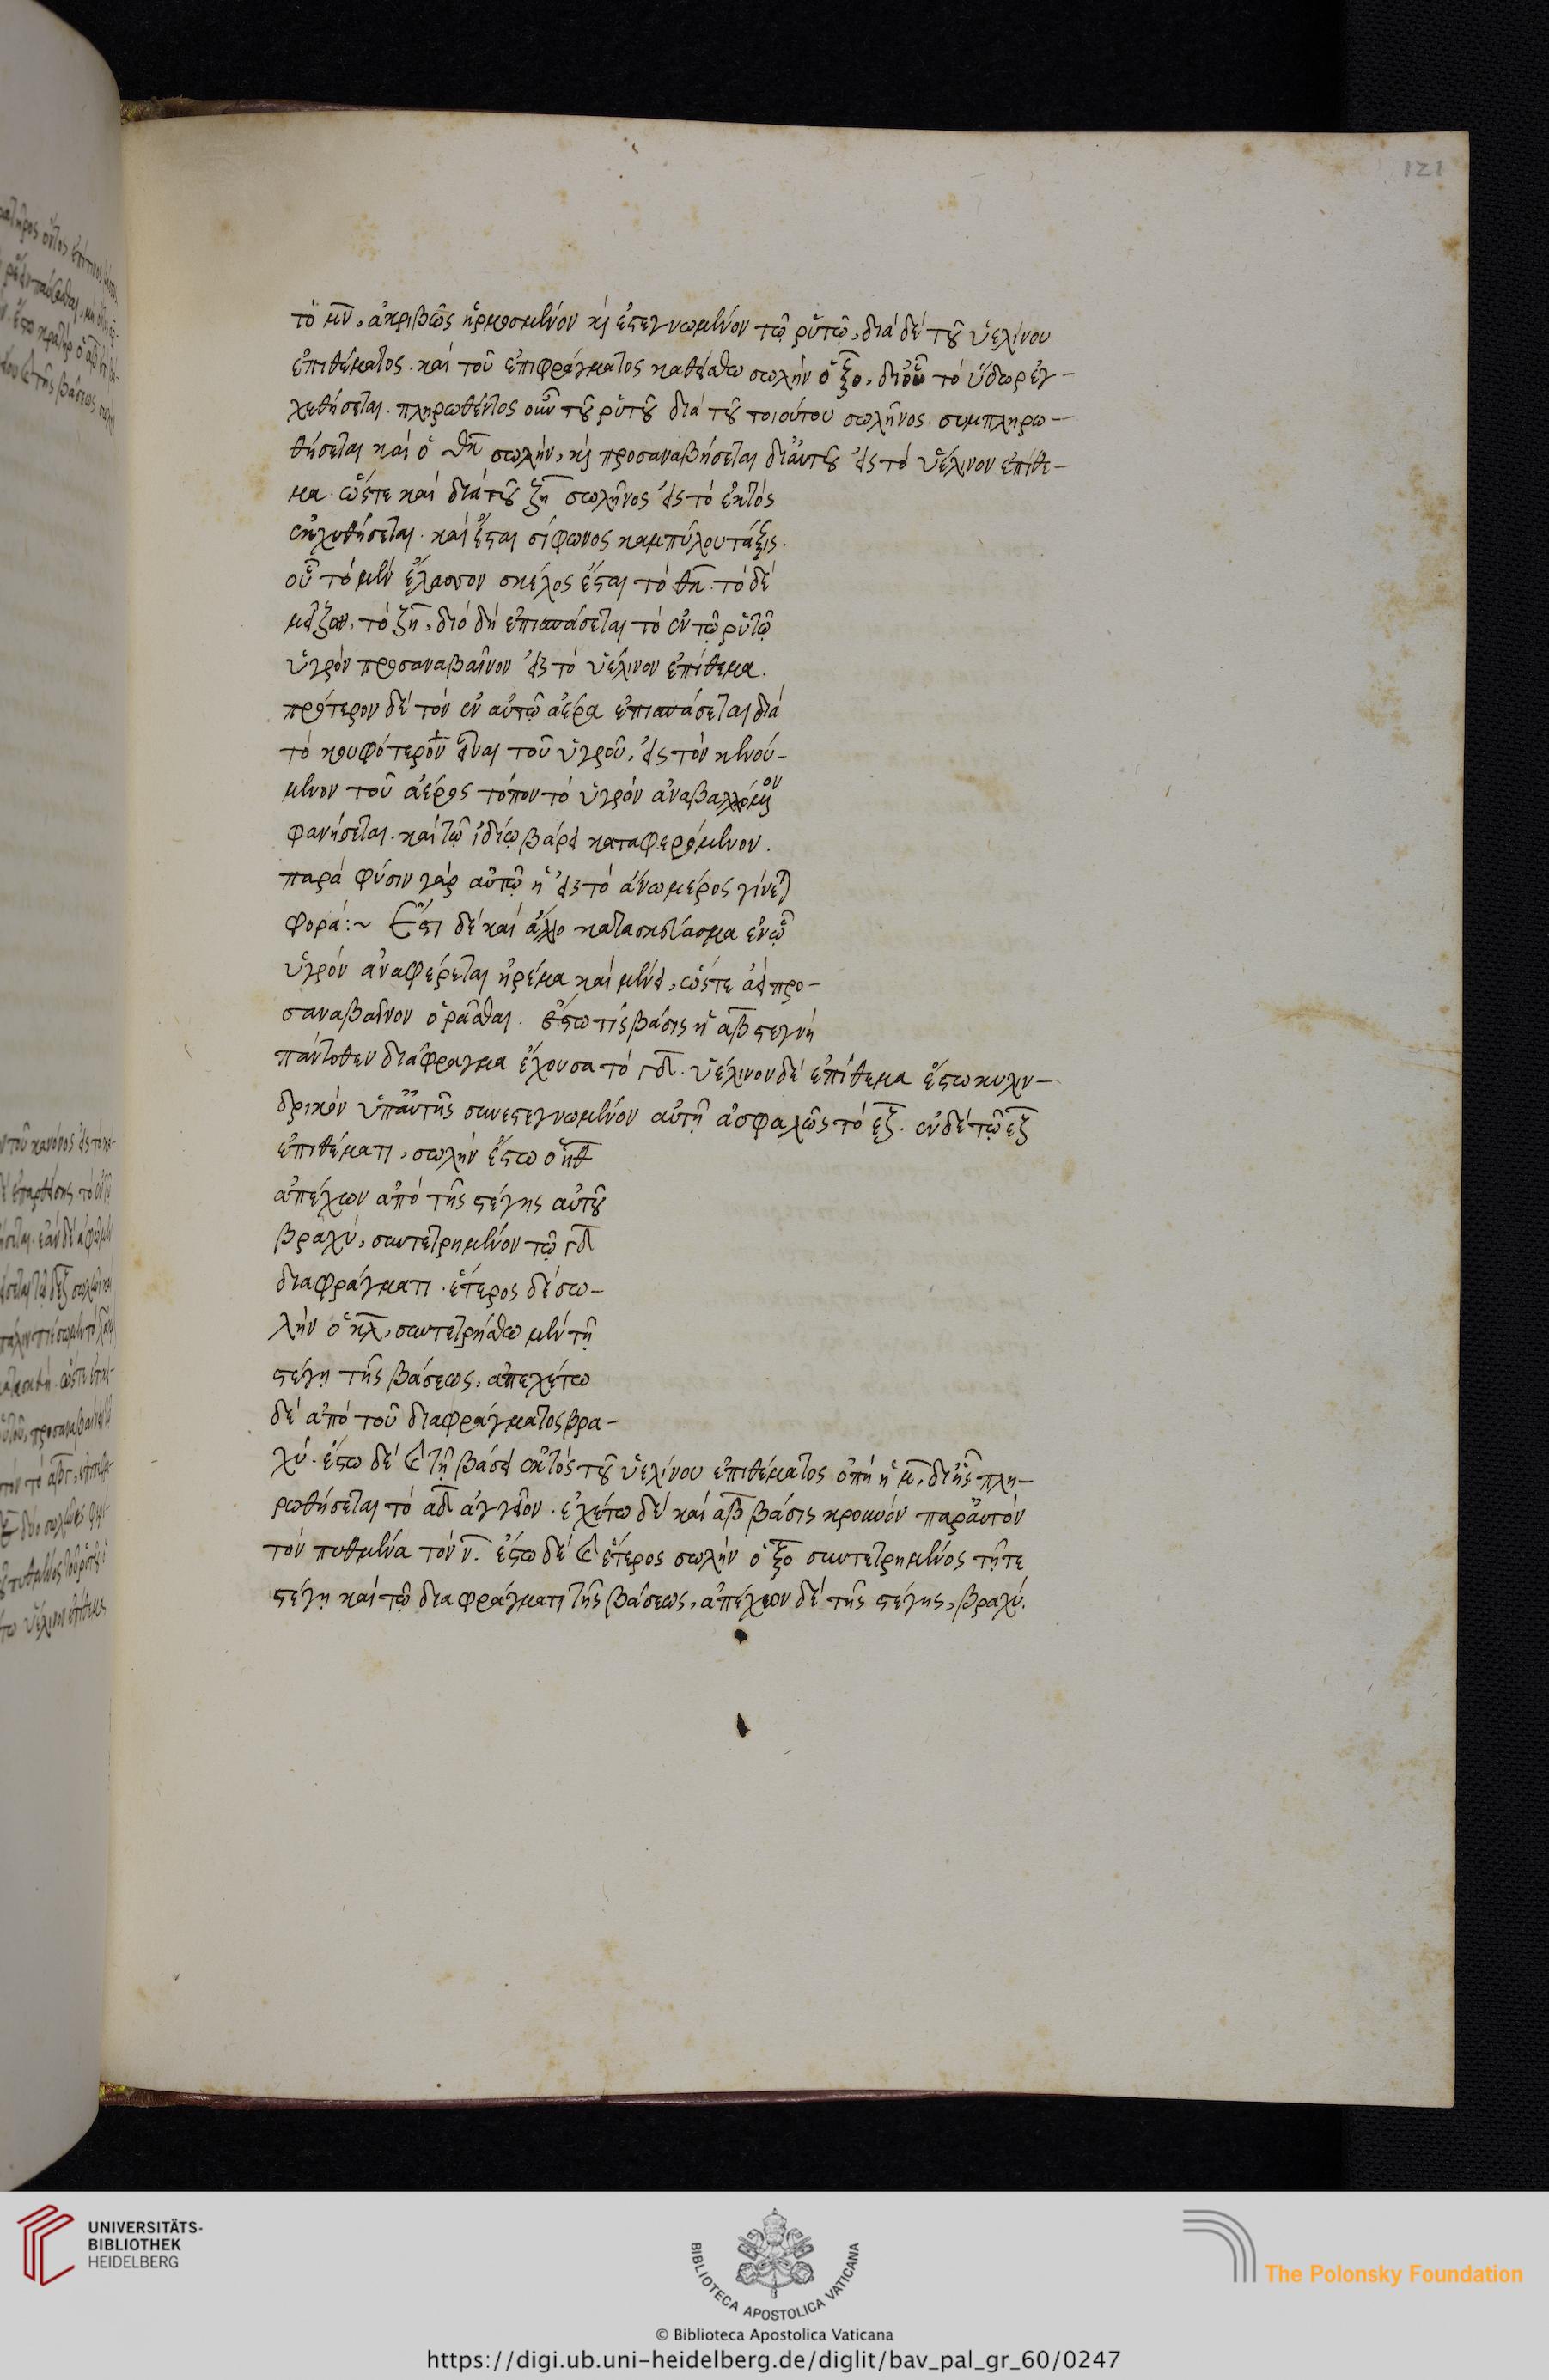 121
τὸ μν, ἀκριβῶς ἡρμοσμένον κὶ ἐστεγνωμένον τῷ ῥυτῷ, διὰ δὲ τοῦ ὑελίνου
ἐπιθέματος. καὶ τοῦ ἐπιφράγματος καθείσθω σωλὴν ὁ ξο, δι' οὗ τὸ ὕδωρ ἐγ-
χυθήσεται. πληρωθέντος οὖν τοῦ ῥυτοῦ διὰ τοῦ τοιούτου σωλῆνος. συμπληρω-
θήσεται καὶ ὁ θκ σωλὴν, κὶ προσαναβήσεται δι' αὐτοῦ εἰς τὸ ὑέλινον ἐπίθε-
μα. ὥστε καὶ διὰ τοῦ ζη σωλῆνος εἰς τὸ ἐκτὸς
ἐκχυθήσεται. καὶ ἔσται σίφωνος καμπύλου τάξις.
οὗ τὸ μὲν ἔλασσον σκέλος ἔσται τὸ θκ. τὸ δὲ
μεῖζον, τὸ ζη, διὸ δὴ ἐπισπάσεται τὸ ἐν τῷ ῥυτῷ
ὑγρὸν προσαναβαῖνον εἰς τὸ ὑέλινον ἐπίθεμα.
πρότερον δὲ τὸν ἐν αὐτῷ ἀέρα ἐπισπάσεται διὰ
τὸ κουφότερον εἶναι τοῦ ὑγροῦ, εἰς τὸν κενού-
μενον τοῦ ἀέρος τόπον τὸ ὑγρὸν ἀναβαλλόμενον
φανήσεται. καὶ τῷ ἰδίῳ βάρει καταφερόμενον.
παρὰ φύσιν γὰρ αὐτῷ ἡ εἰς τὸ ἄνω μέρος γίνεται
φορά:~ Ἔστι δὲ καὶ ἄλλο κατασκεύασμα ἐν ᾧ
ὑγρὸν ἀναφέρεται ἠρέμα καὶ μένει, ὥστε ἀεὶ προ-
σαναβαῖνον ὁρᾶσθαι. ἔστω τίς βάσις ἡ αβ στεγνὴ
πάντοθεν διάφραγμα ἔχουσα τὸ γδ. ὑέλινον δὲ ἐπίθεμα ἔστω κυλιν-
δρικὸν ὑπ' αὐτῆς συνεστεγνωμένον αὐτῇ ἀσφαλῶς τὸ εζ. ἐν δὲ τῷ εζ
ἐπιθέματι, σωλὴν ἔστω ὁ ηθ
ἀπέχων ἀπὸ τῆς στέγης αὐτοῦ
βραχὺ, συντετρημένον τῷ γδ
διαφράγματι. ἕτερος δὲ σω-
λὴν ὁ κλ, συντετρήσθω μὲν τῇ
στέγῃ τῆς βάσεως, ἀπεχέτω
δὲ ἀπὸ τοῦ διαφράγματος βρα-
χύ. ἔστω δὲ καὶ τῇ βάσει ἐκτὸς τοῦ ὑελίνου ἐπιθέματος ὀπὴ ἡ μ, δι' ἧς πλη-
ρωθήσεται τὸ αδ ἀγγεῖον. ἐχέτω δὲ καὶ αβ βάσις κρουνὸν παρ' αὐτὸν
τὸν πυθμένα τὸν ν. ἔστω δὲ καὶ ἕτερος σωλὴν ὁ ξο συντετρημένος τῇ τε
στέγῃ καὶ τῷ διαφράγματι τῆς βάσεως, ἀπέχων δὲ τῆς στέγης, βραχύ.
UNIVERSITÄTS-
BIBLIOTHEK
HEIDELBERG
BIBLIOTECA APOSTOLICA VATICANA
The Polonsky Foundation
© Biblioteca Apostolica Vaticana
https://digi.ub.uni-heidelberg.de/diglit/bav_pal_gr_60/0247